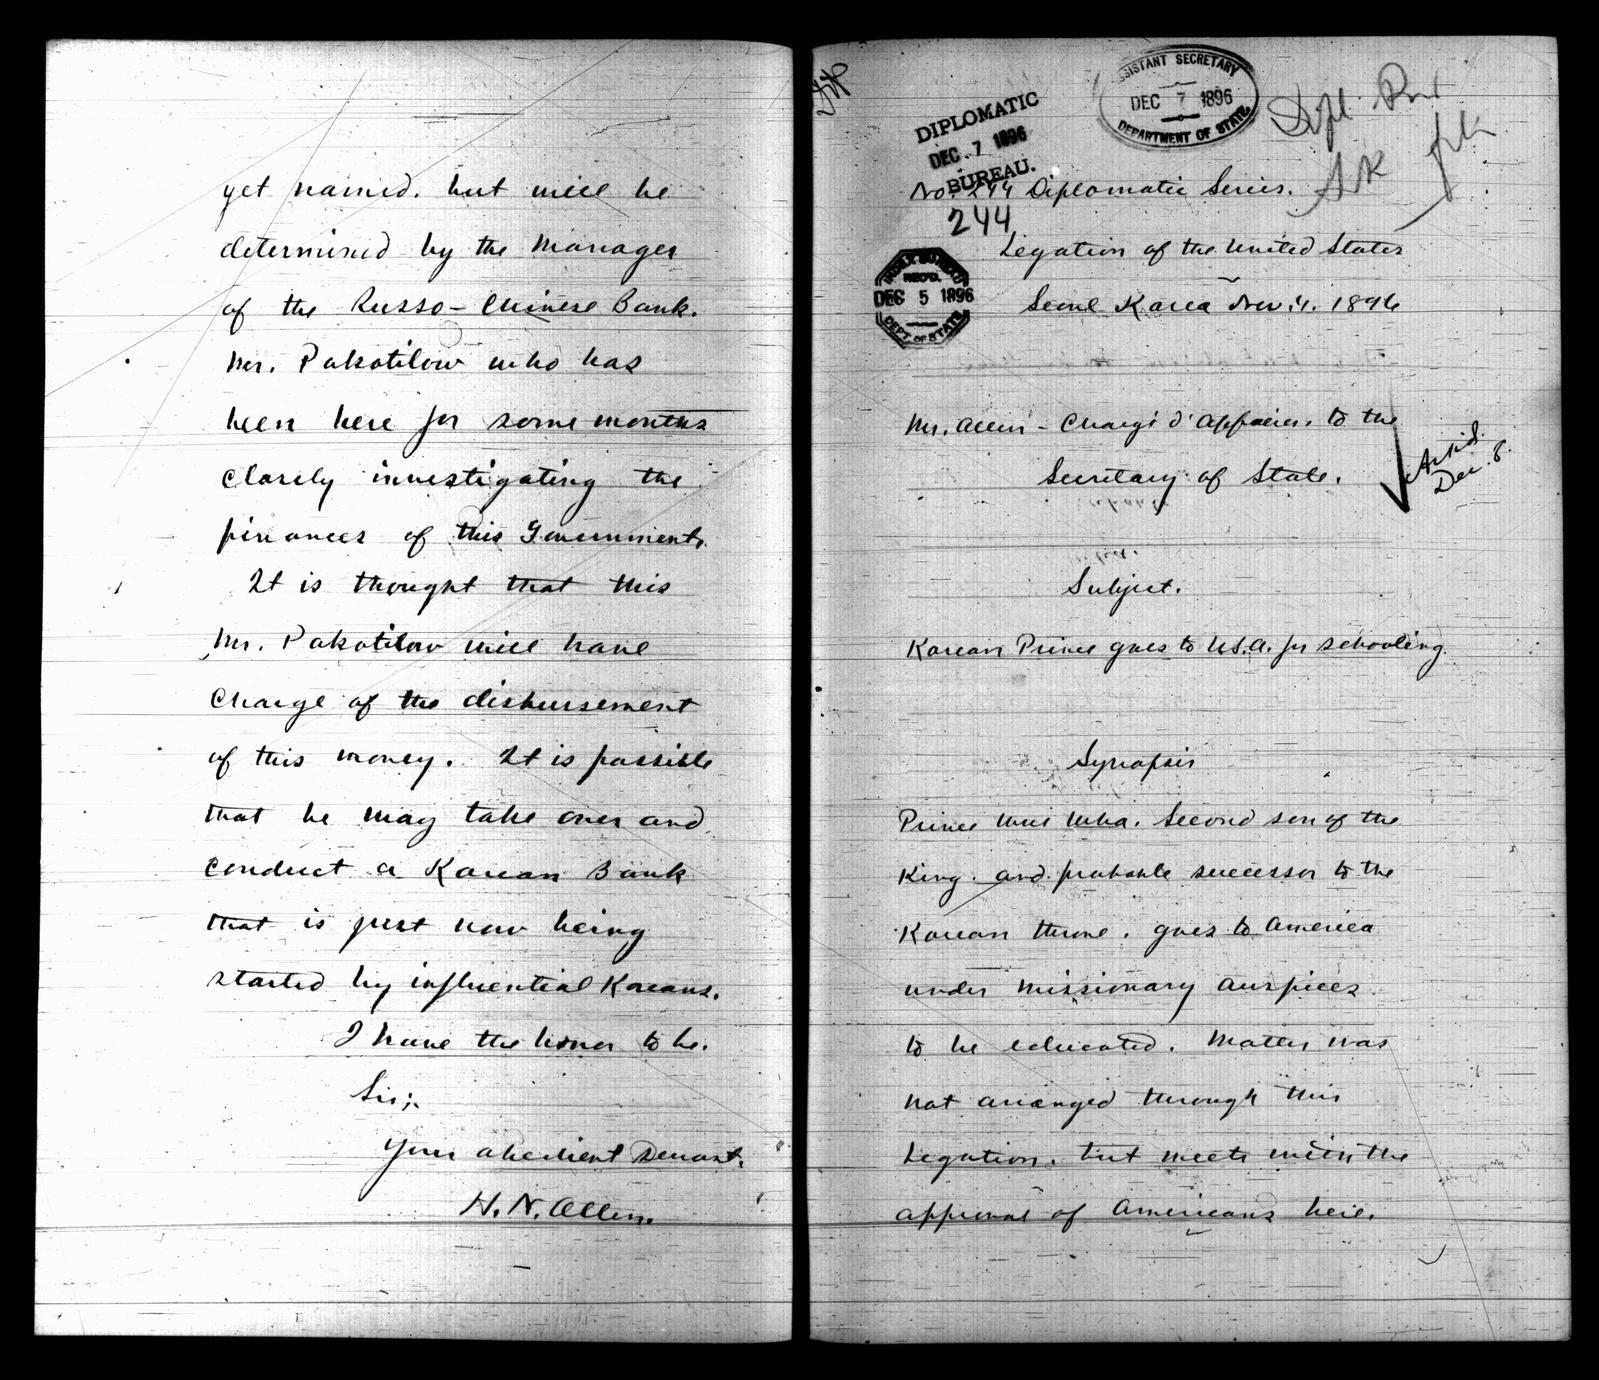 yet named, but will be
determined by the Manager
of the Russo-Chinese Bank.
Mr. Pokotilow who has
been here for some months
closely investigating the
finances of this Government.
It is thought that this
Mr. Pokotilow will have
charge of the disbursement
of this money. It is possible
that he may take over and
conduct a Korean Bank
that is just now being
started by influential Koreans.
I have the honor to be.
Sir;.
Your obedient Servant.
H. N. Allen.
DIPLOMATIC
DEC. 7 1896
BUREAU.
ASSISTANT SECRETARY
DEC 7 1896
DEPARTMENT OF STATE
Dipl.
No. 244 Diplomatic Series.
244
Legation of the United States
INDEX BUREAU
REC'D.
DEC 5 1896
DEPT. OF STATE
Seoul Korea Nov. 1896
Mr. Allen - Chargé d'Affaires, to the
Secretary of State.
Ackd.
Dec. 8.
Subject.
Korean Prince goes to U.S.A. for schooling.
Synopsis
Prince Wui Wha. Second son of the
King. and probable successor to the
Korean throne, goes to America
under missionary auspices
to be educated. Matter was
not arranged through this
Legation, but meets with the
approval of Americans here.